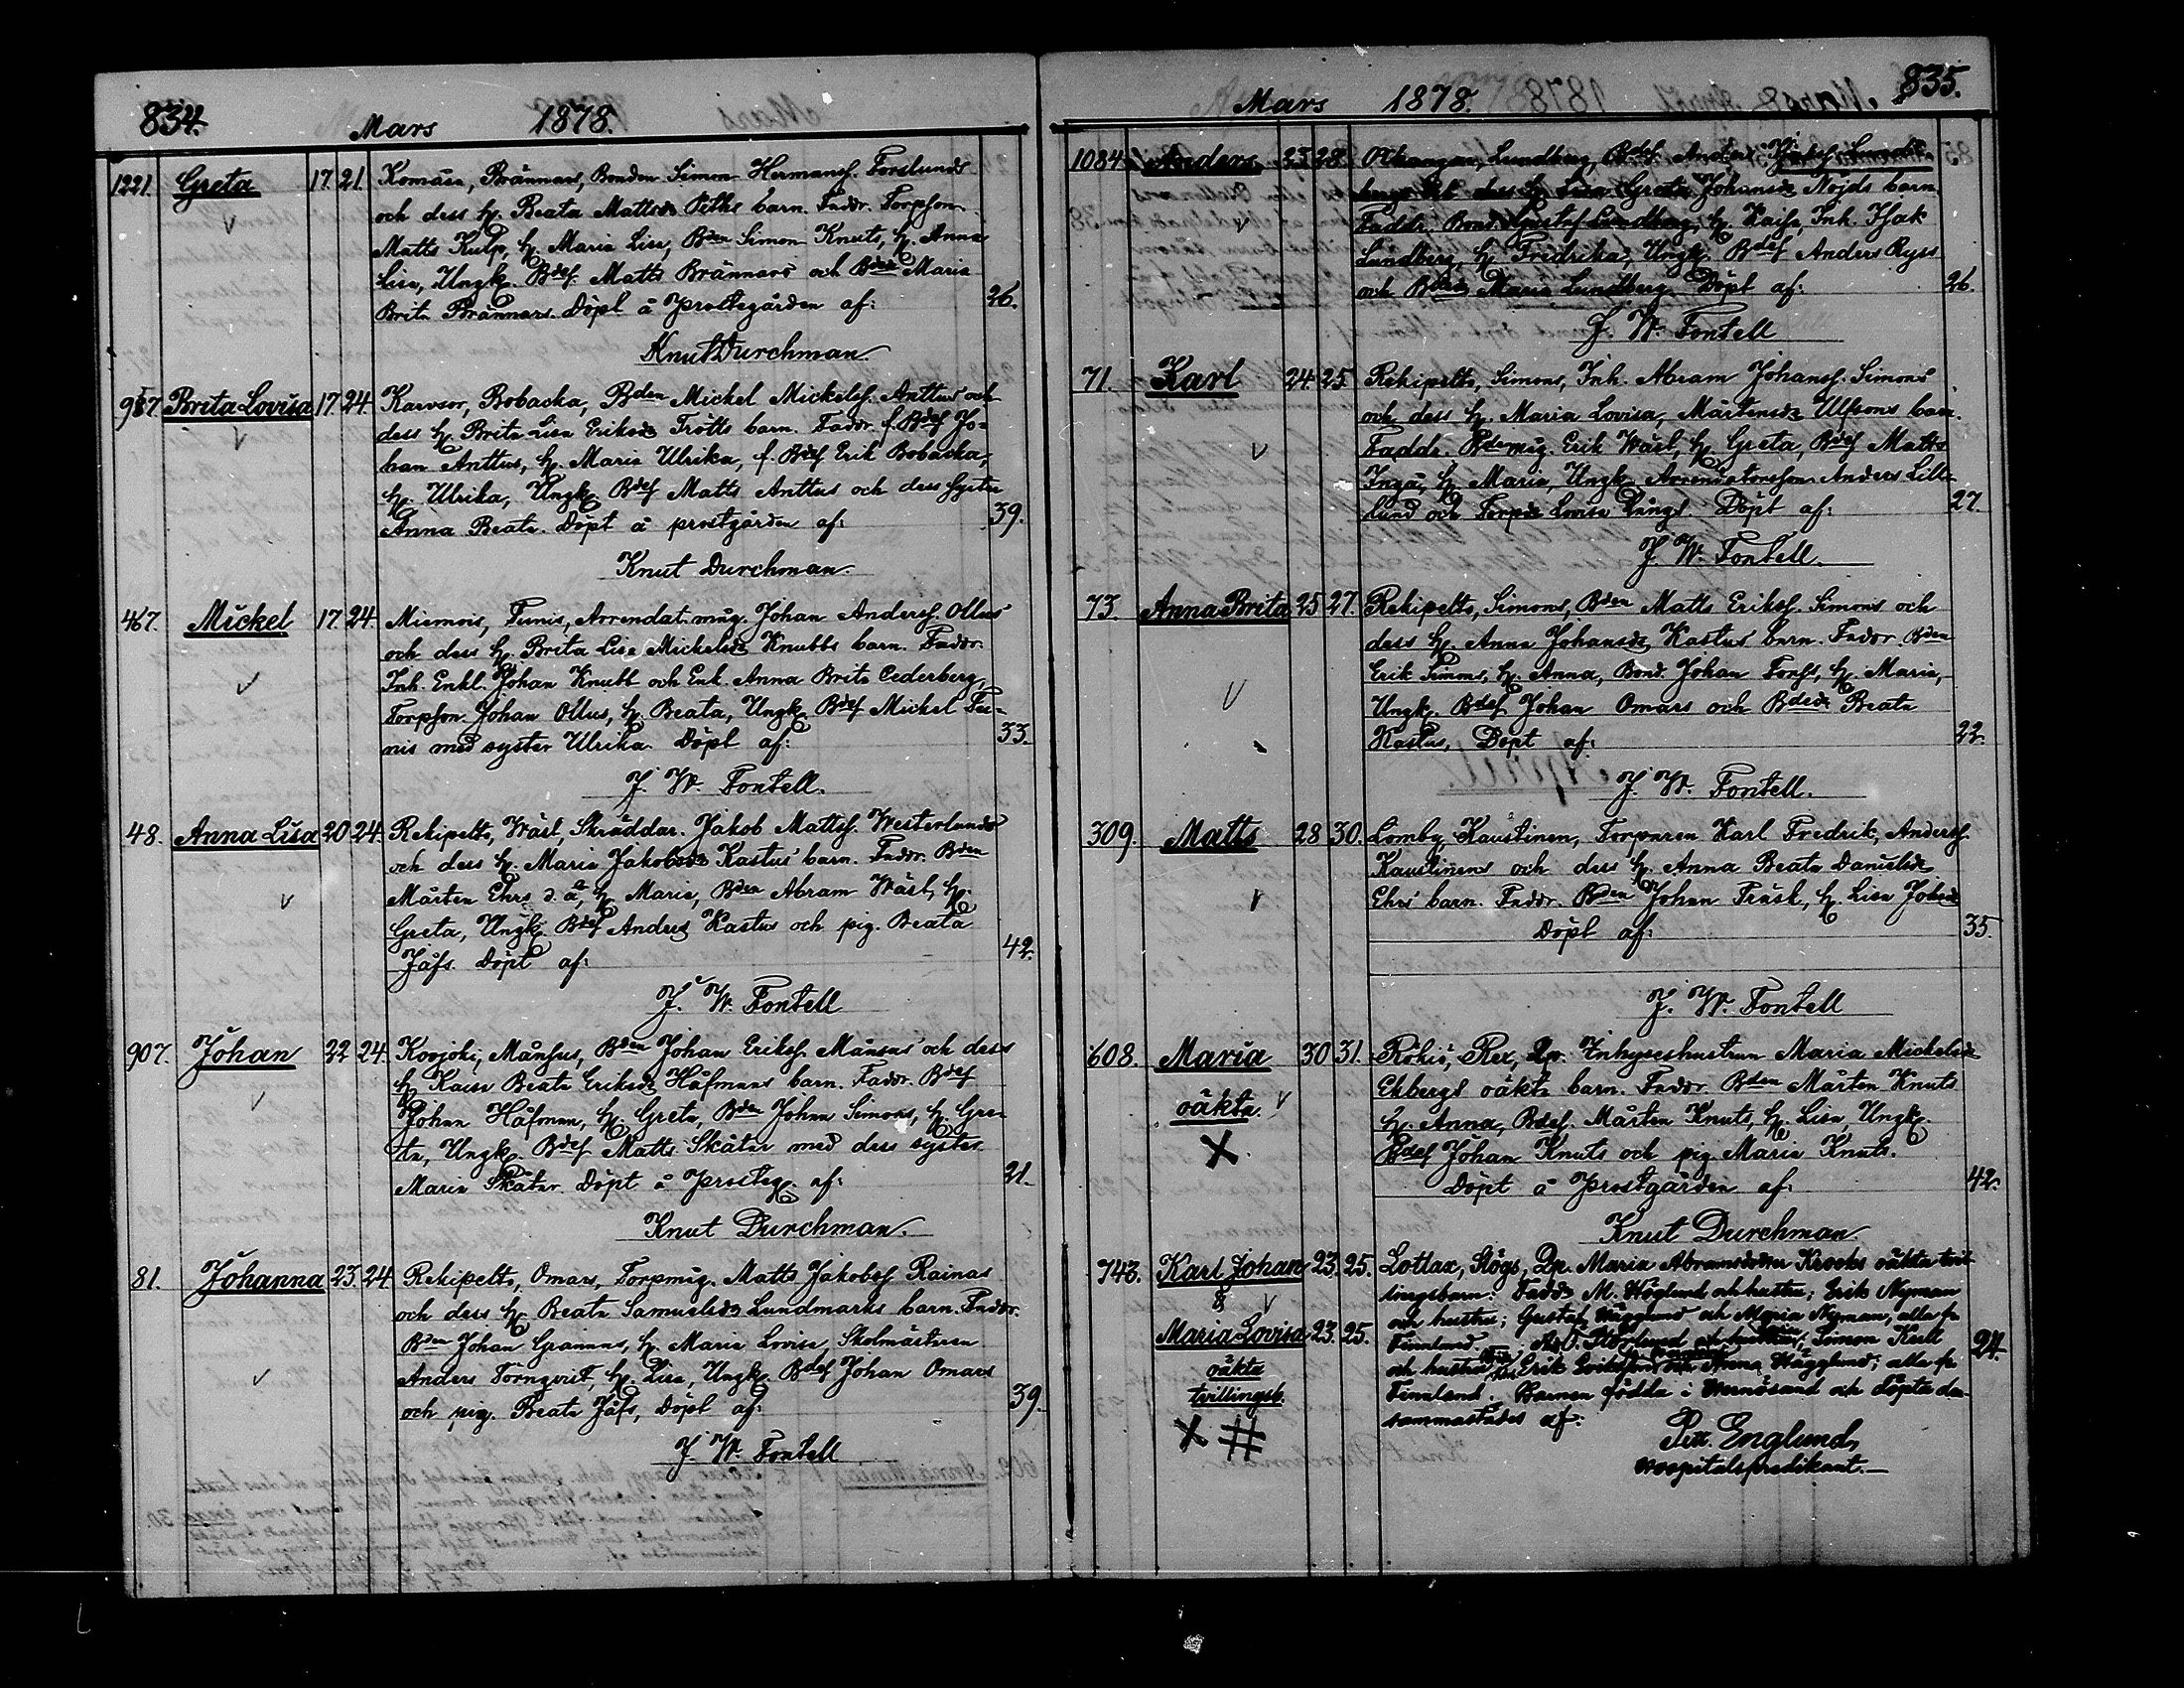 834.
Mars 1878.
1221. Greta 17. 21. Komåsa, Brännars, Bonden Simon Hermansf. Forslunds
och dess h. Beata Mattsdr Piths barn. Faddr. Torpson
Matts Kulp, h. Maria Lisa, Bden Simon Knuts, h. Anna
Lisa, Ungk. Bdef. Matts Brännars och Bdedr Maria
Brita Brännars. Döpt å Prostgården af: 26.
Knut Durchman.
987. Brita Lovisa 17. 24. Karvsor, Bobacka, Bden Michel Mickelsf. Anttus och
dess h. Brita Lisa Eriksdr Trötts barn. Faddr. f. Bdef Jo-
han Anttus, h. Maria Ulrika, f. Bdef Erik Bobacka,
h. Ulrika, Ungk. Bdef Matts Anttus och dess syster
Anna Beata. Döpt å prostgården af: 39.
Knut Durchman.
467. Mickel 17. 24. Miemois, Tunis, Arrendat.måg. Johan Andersf. Ollus
och dess h. Brita Lisa Mickelsdr Knubbs barn. Faddr.
Inh. Enkl. Johan Knubb och Enk. Anna Brita Cederberg,
Torpson Johan Ollus, h. Beata, Ungk. Bdef Mickel Tu-
nis med syster Ulrika. Döpt af: 33.
J. W. Fontell.
48. Anna Lisa 20 24. Rekipelto, Wärl, Skräddar. Jakob Mattsf. Westerlunds
och dess h. Maria Jakobsdr Kastus barn. Faddr. Bden
Mårten Ehrs d. ä, h. Maria, Bden Abram Wärl, h.
Greta, Ungk. Bdef Anders Kastus och pig. Beata
Jåfs. Döpt af: 42.
J. W. Fontell
907. Johan 22 24. Koojoki, Månsus, Bden Johan Eriksf. Månsus och dess
h. Kaisa Beata Eriksdr Håfmans barn. Faddr. Bdef
Johan Håfman, h. Greta, Bden Johan Simons, h. Gre-
ta, Ungk. Bdef Matts Skåtar med dess syster
Maria Skåtar. Döpt å Prostg. af: 21.
Knut Durchman.
81. Johanna 23. 24. Rekipelto, Omars, Torpmåg. Matts Jakobsf Rainas
och dess h. Beata Samuelsdr Lundmarks barn. Faddr.
Bden Johan Grannas, h. Maria Lovisa, Skolmästaren
Anders Törnqvist, h. Lisa, Ungk. Bdef Johan Omars
och pig. Beata Jåfs, Döpt af: 39.
J. W. Fontell
835.
Mars 1878.
1084. Anders 23 28. Lundberg, Bdef. Anders
dess h. Lisa Greta Johansdr Nöjds barn
Faddr. Bond. Gustaf Lundberg, h. Kaisa, Inh. Isak
Lundberg, h. Fredrika, Ungk. Bdef Anders Ryss
och Bdedr Maria Lundberg. Döpt af: 26.
J. W. Fontell
71. Karl 24. 25. Rekipelto, Simons, Inh. Abram Johansf. Simons
och dess h. Maria Lovisa, Mårtensdr Ulfsons barn.
Faddr. Bdemåg. Erik Wärl, h. Greta, Bdef Matts
Inga, h. Maria, Ungk. Arrendatorssonen Anders Lill-
lund och Torpdr Lovisa Långs. Döpt af: 27.
J. W. Fontell.
73. Anna Brita 25 27. Rekipelto, Simons, Bden Matts Eriksf. Simons och
dess h. Anna Johansdr Kastus barn. Faddr. Bden
Erik Simons, h. Anna, Bond. Johan Forss, h. Maria,
Ungk. Bdef Johan Omars och Bdedr Beata
Kastus, Döpt af: 22.
J. W. Fontell.
309. Matts 28 30. Lomby, Kaustinen, Torparen Karl Fredrik, Andersf.
Kaustinens och dess h. Anna Beata Danielsdr
Ehrs barn. Faddr. Bden Johan Träsk, h. Lisa
Döpt af: 35.
J. W. Fontell
608. Maria 30 31. Rökiö, Rex, Inhyseshustrun Maria Mickelsdr
Ekbergs oäkta barn. Faddr. Bden Mårten Knuts
oäkta. h. Anna, Bdef. Mårten Knuts, h. Lisa, Ungk.
Bdef Johan Knuts och pig. Maria Knuts.
Döpt å Prostgården af: 42.
Knut Durchman
743. Karl Johan 23. 25. Lottax, Högs, Dp. Maria Abramsdotter Krooks oäkta tvil-
& lingsbarn: Faddr M. Höglund och hustru; Erik Nyman
och hustru; Gustaf Hägglund och Maria Nyman, alla fr.
Maria Lovisa 23. 25. Finnland. och hustru, Simon Kult
oäkta och hustru Erik Eriksson och Anna Hägglund; alla fr. 24.
tvillingsb. Finnland. Barnen födda i Hernösand och döpta der-
sammastädes af:
Petr. Englund,
Hospitalspredikant.